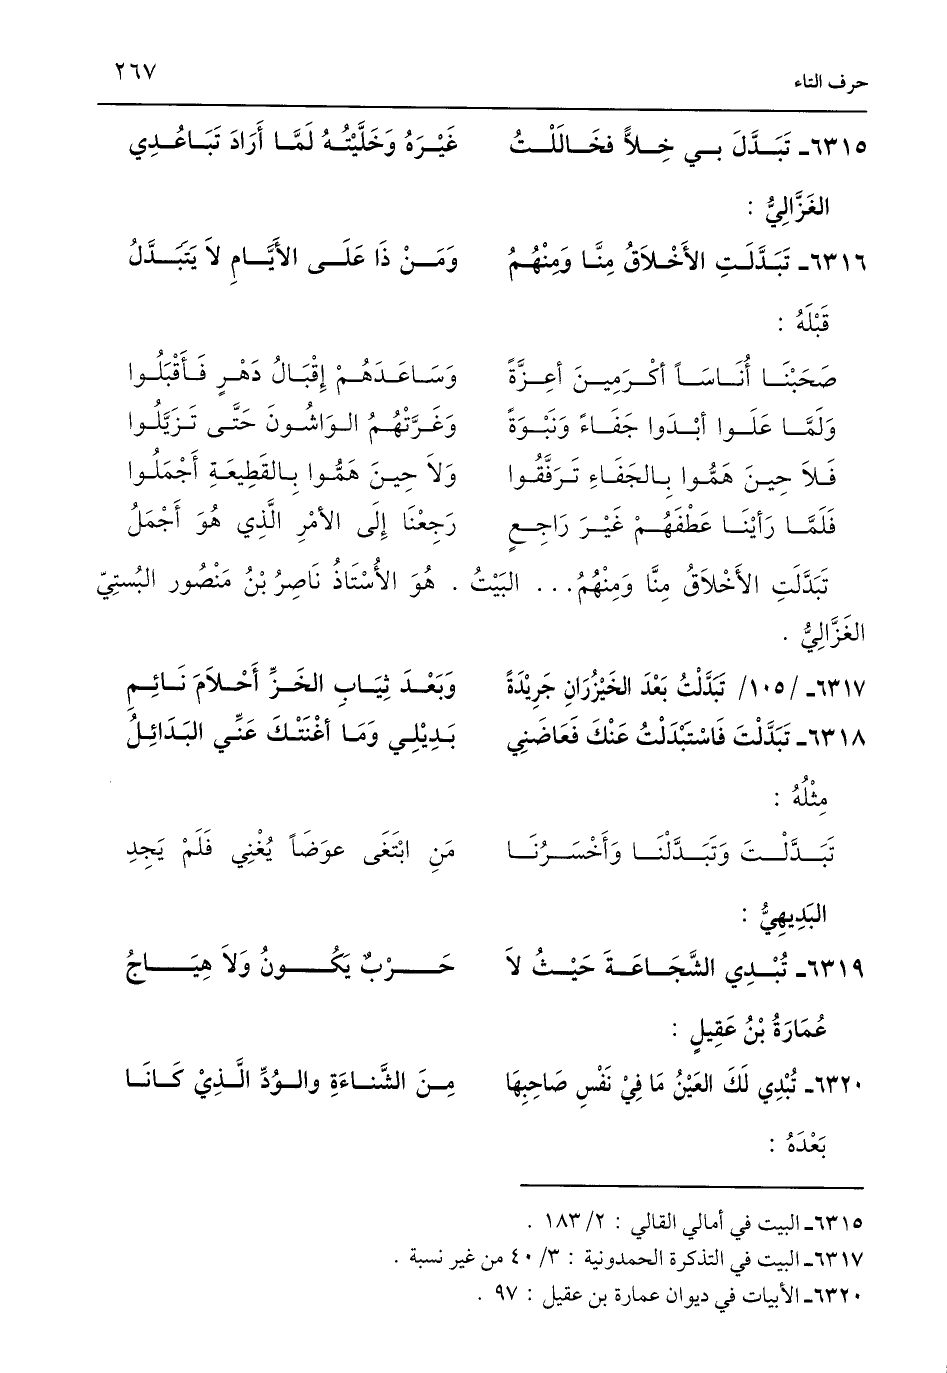 حرف التاء ٢٦٧
٦٣١٥ـ تَبَدَّلَ بِي خِلاًّ فخَالَلْتُ غَيْرَهُ وَخَلَّيْتُهُ لَمَّا أَرَادَ تَبَاعُدِي
الغَزَّالِيُّ :
٦٣١٦ـ تَبَدَّلَتِ الأَخْلاَقُ مِنَّا وَمِنْهُمُ وَمَنْ ذَا عَلَى الأَيَّامِ لاَ يَتَبَدَّلُ
قَبْلَهُ :
صَحَبْنَا أُنَاسَاً أكْرَمِينَ أعِزَّةً وَسَاعَدَهُمْ إقْبَالُ دَهْرٍ فَأقْبَلُوا
وَلَمَّا عَلَوا أبْدَوا جَفَاءً وَنَبْوَةً وَغَرَّتْهُمُ الوَاشُونَ حَتَّى تَزَيَّلُوا
فَلاَ حِينَ هَمُّوا بِالجَفَاءِ تَرَفَّقُوا وَلاَ حِينَ هَمُّوا بِالقَطِيعَةِ أجْمَلُوا
فَلَمَّا رَأيْنَا عَطْفَهُمْ غَيْرَ رَاجِعٍ رَجِعْنَا إلَى الأمْرِ الَّذِي هُوَ أجْمَلُ
تَبَدَّلَتِ الأَخْلاَقُ مِنَّا وَمِنْهُمُ. . . البَيْتُ . هُوَ الأُسْتَاذُ نَاصِرُ بْنُ مَنْصُور البُستِيّ
الغَزَّالِيُّ .
٦٣١٧ـ /١٠٥/ تَبَدَّلْتُ بَعْدَ الخَيْزُرَانِ جَرِيْدَةً وَبَعْدَ ثِيَابِ الخَزِّ أحْلاَمَ نَائِمِ
٦٣١٨ـ تَبَدَّلْتَ فَاسْتَبْدَلْتُ عَنْكَ فَعَاضَنِي بَدِيْلِي وَمَا أغْنَتْكَ عَنِّي البَدَائِلُ
مِثْلُهُ :
تَبَدَّلْتَ وَتَبَدَّلْنَا وَأَخْسَرُنَا مَنِ ابْتَغَى عوَضَاً يُغْنِي فَلَمْ يَجِدِ
البَدِيهِيُّ :
٦٣١٩ـ تُبْدِي الشَّجَاعَةَ حَيْثُ لاَ حَرْبٌ يَكُونُ وَلاَ هِيَاجُ
عُمَارَةُ بْنُ عَقِيلٍ :
٦٣٢٠ـ تُبْدِي لَكَ العَيْنُ مَا فِيْ نَفْسِ صَاحِبِهَا مِنَ الشَّناءَةِ والوُدِّ الَّذِيْ كَانَا
بَعْدَهُ :
٦٣١٥ـ البيت في أمالي القالي : ٢/ ١٨٣ .
٦٣١٧ـ البيت في التذكرة الحمدونية : ٣/ ٤٠ من غير نسبة .
٦٣٢٠ـ الأبيات في ديوان عمارة بن عقيل : ٩٧ .